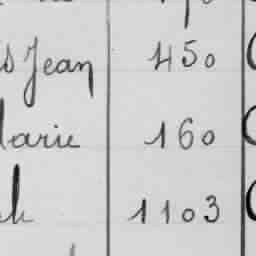 Jean 450
Marie 160
1103